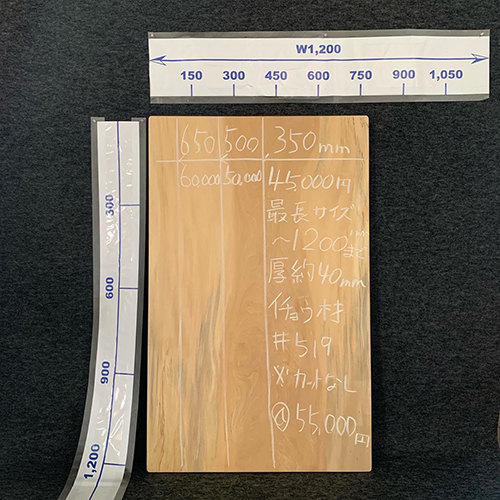 W1,200
150 300 450 600 750 900 1,050
300
600
900
1,200
650 500 350mm
60,000 50,000 45000円
最長サイズ
〜1200mmまで
厚約40mm
イチョウ材
#519
※カットなし
55,000円